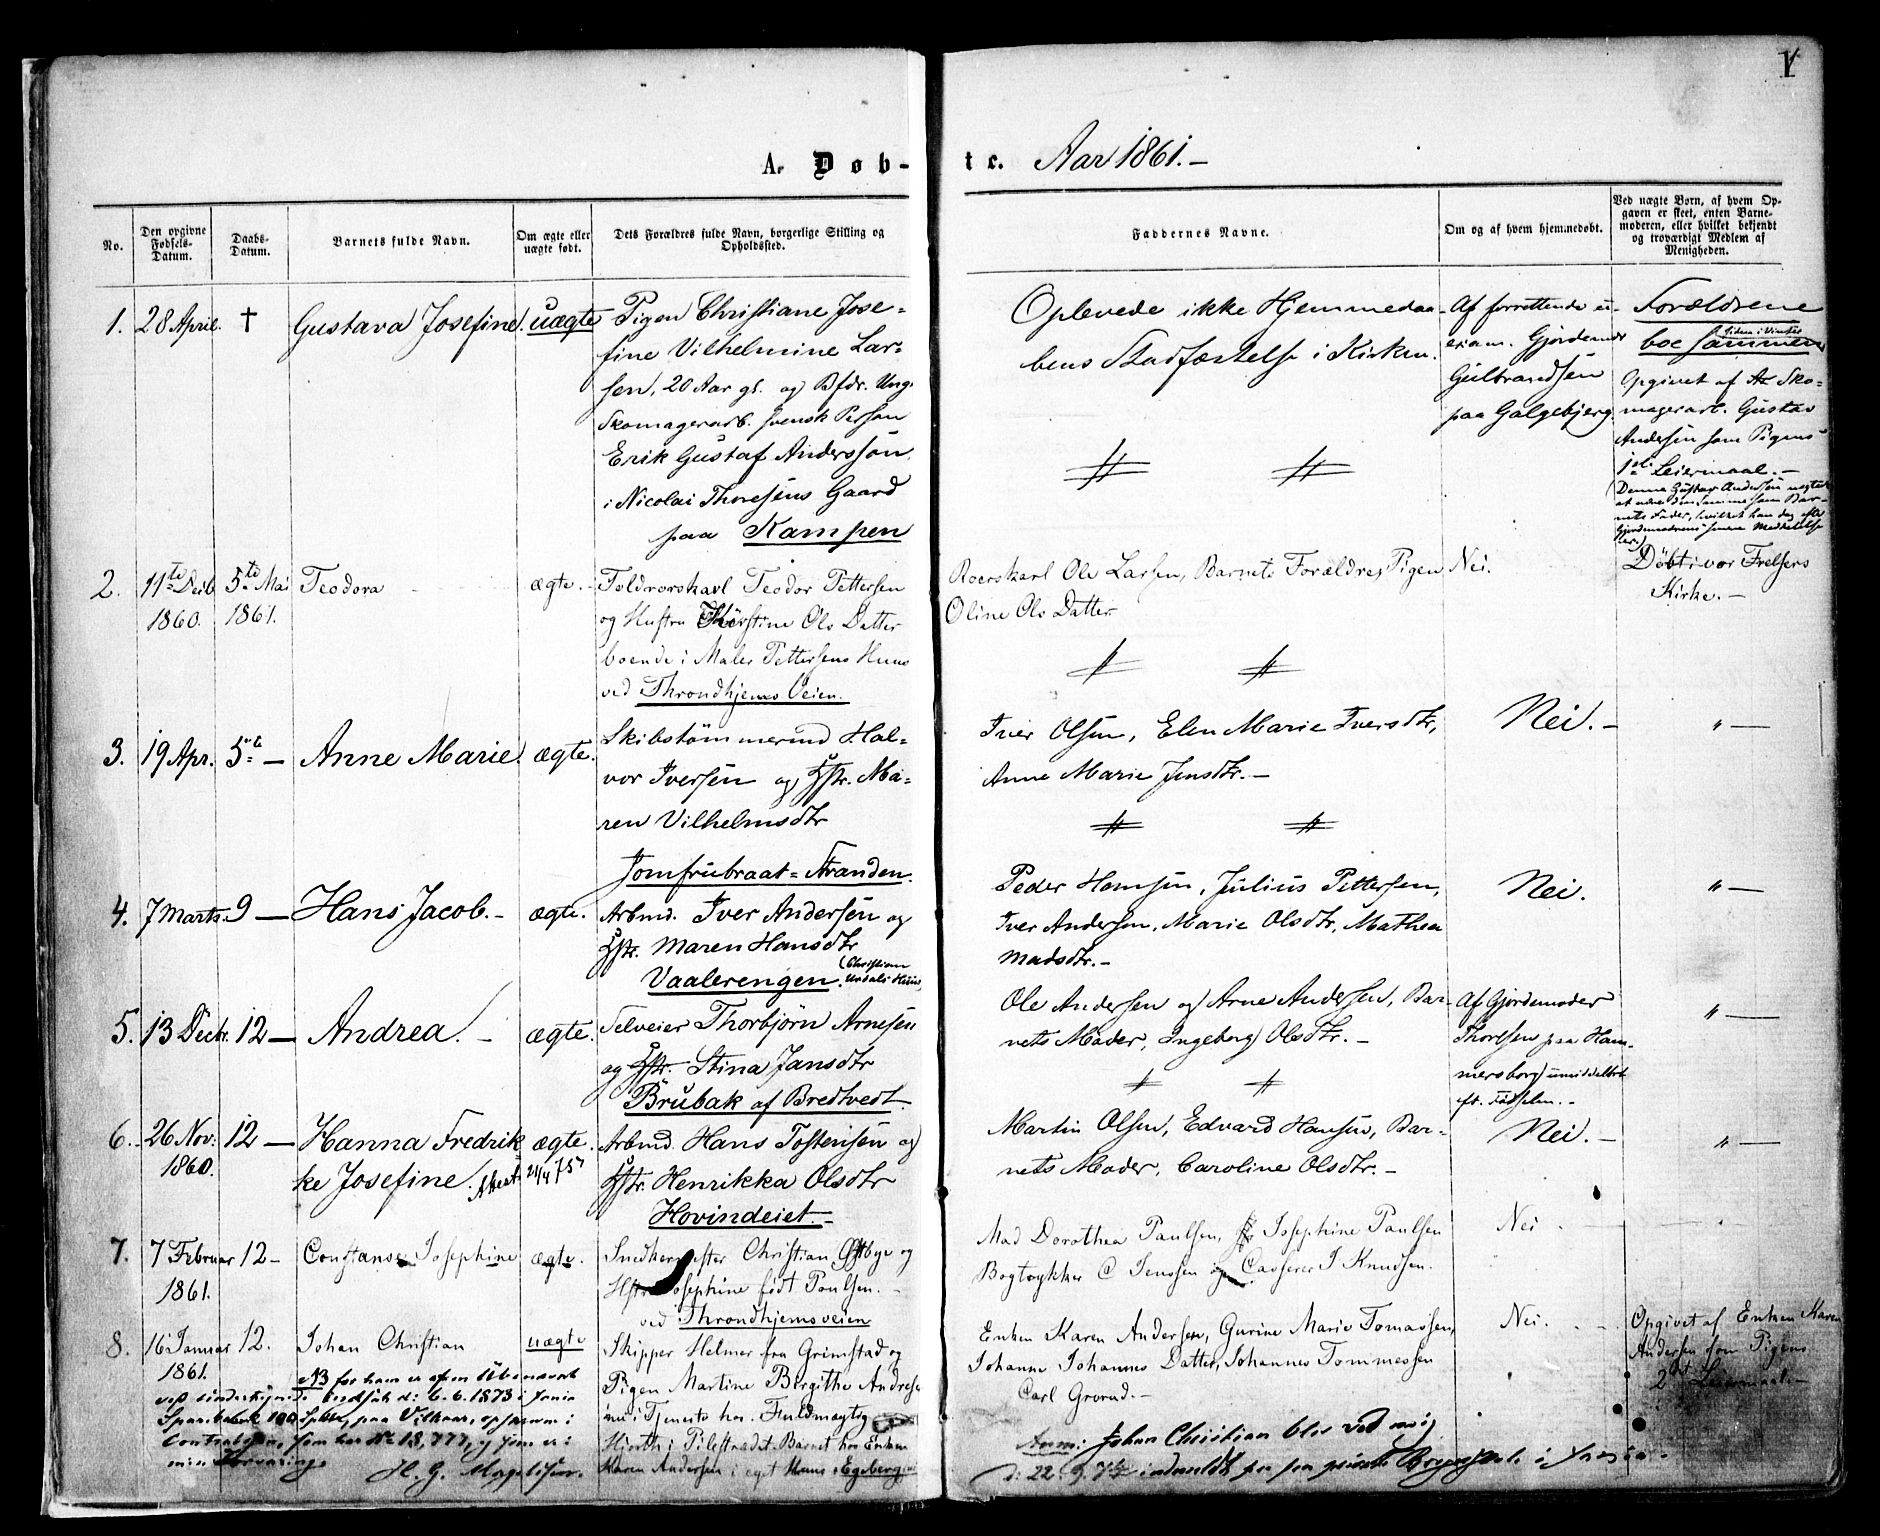 1
A. Døb- te. Aar 1861.-
No.
Den opgivne Fødsels-Datum.
Daabs-Datum.
Barnets fulde Navn.
Om ægte eller uægte født.
Dets Forældres fulde Navn, borgerlige Stilling og Opholdssted.
Faddernes Navne.
Om og af hvem hjemmedøbt.
Ved uægte Børn, af hvem Opgaven er skeet, enten Barnemoderen, eller hvilket bekjendt og troværdigt Medlem af Menigheden.
1. 28 April. † Gustava Josefine. uægte
Pigen Christiane Jose-
fine Vilhelmine Lar-
sen, 20 Aar gl. og Bfdr. Ung.
Skomagerarb. svensk Person
Erik Gustaf Andersson,
i Nicolai Thoresens Gaard
paa Kampen
Oplevede ikke Hjemmedaa-
bens Stadfæstelse i Kirken.
Af forrettende
Gjordemoder
Gulbrandsen
paa Galgebjerg.
Forældrene
boe sammen
Opgivet af Sko-
magerarb. Gustav
Andersen som Pigens
1ste Leiermaal.-
(Denne Gustav Andersen negtede
at være den samme som Bar-
nets Fader, hvilket han dog efter
Gjordemoderens senere Meddelelse
2. 11te Decb 5te Mai Teodora ægte.
1860. 1861.
Toldroerskarl Teodor Pettersen
og Hustru Kirstine Ols Datter
boende i Maler Pettersens Huus
ved Throndhjems Veien.
Roerskarl Ole Larsen, Barnets Forældre, Pigen
Oline Ols Datter
Nei.
Døbt i vor Frelsers
Kirke.-
3. 19 Apr. 5te — Anne Marie. ægte.
Skibstømmermd Hal-
vor Iversen og Hstr. Ma-
ren Vilhelmsdtr
Jomfrubraat-Stranden.
Iver Olsen, Elen Marie Iversdtr,
Anne Marie Jensdtr.-
Nei.- " —
4. 7 Marts. 9 — Hans Jacob.- ægte.
Arbmd. Iver Andersen og
Hstr. Maren Hansdtr
Vaalerengen. (Christian
Undals Huus)
Peder Hansen, Julius Pettersen,
Iver Andersen, Marie Olsdtr, Mathea
Madsdtr.-
Nei. " —
5. 13 Decbr. 12 — Andrea. - ægte.
Selveier Thorbjørn Arnesen
og Hstr. Stina Jansdtr
Brubak af Bredtvedt.
Ole Andersen og Arne Andersen, Bar-
nets Moder, Ingeborg Olsdtr.-
Af Gjordemoder
Thorsen paa Ham-
mersborg umiddelbart
eft. Fødselen.-
" —
6. 26 Nov: 12 — Hanna Fredrik ægte.
1860. ke Josefine. Attest 21/4 75
Arbmd. Hans Tostensen og
Hstr. Henrikka Olsdtr
Hovindeiet.-
Martin Olsen, Edvard Hansen, Bar-
nets Moder, Caroline Olsdtr.-
Nei.- " —
7. 7 Februar 12- Constanse Josephine ægte.
1861.
Christian Østbye og
Hstr. Josephine født Paulsen.
ved Throndhjemsveien
Mad Dorothea Paulsen, Josephine Paulsen
Bogtrykker C Jenssen og Casserer J Knudsen.
Nei
8. 16 Januar 12. Johan Christian uægte
1861.
Skipper Helmer fra Grimstad og
Pigen Martine Birgithe Andrese
nu i Tjeneste hos Fuldmægtig
Hjorth i Pilestrædet. Barnet hos Enken
Karen Andersen i eget Huus
Enken Karen Andersen, Gurine Marie Tomassen,
Johanne Johannes Datter, Johannes Tommessen
Carl Grorud.-
Nei.
Opgivet af Enken Karen
Andersen som Pigens
2det Leiermaal.-
NB for ham er af en Ubenævnt
Sparebank 100 Spd, paa Vilkaar, opført i
som har No 18,777, og som er i
min Forvaring.
Anm: Johan Christian blev ved mig
d: 22.9.74 indmeldt